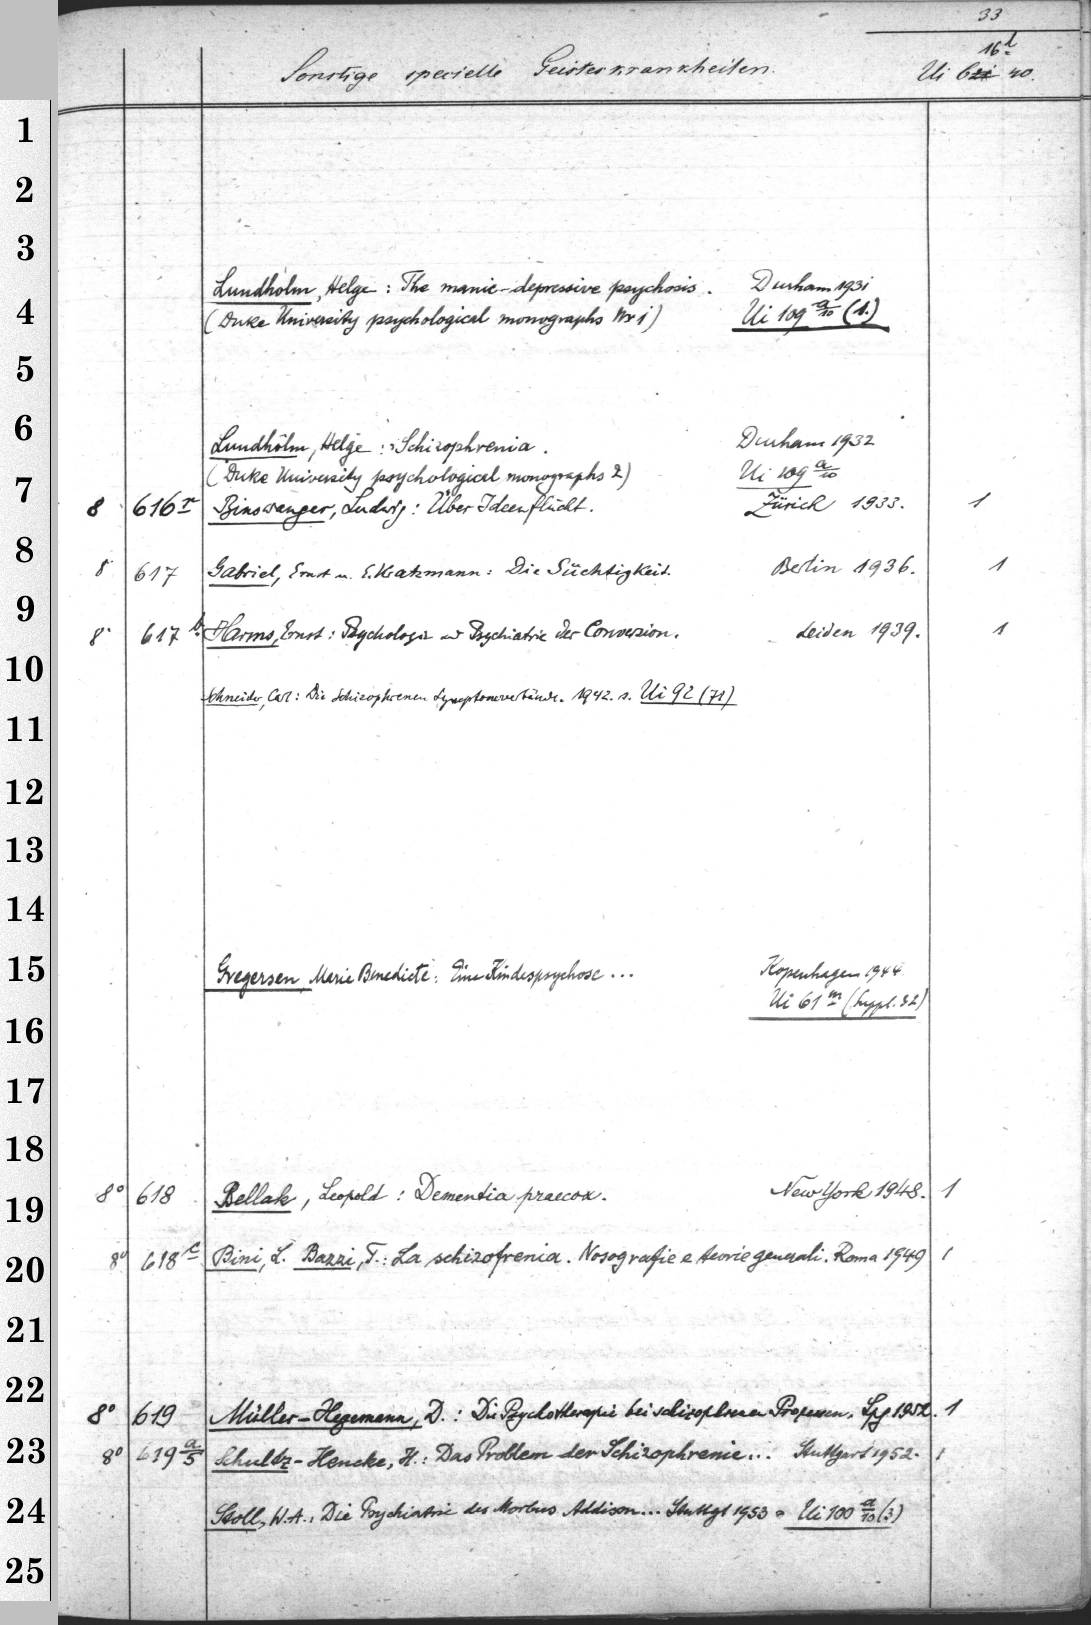 33
Sonstige specielle Geisteskrankheiten. Ui 16d 40.
1
2
3
Lundholm, Helge: The manic-depressive psychosis. Durham 1931
4
(Duke University psychological monographs Nr 1) Ui 109 a/10 (1.)
5
6
Lundholm, Helge: Schizophrenia. Durham 1932
(Duke University psychological monographs 2) Ui 109 a/10
7
8 616 r Binswanger, Ludwig: Über Ideenflucht. Zürich 1933. 1
8
8 617 Gabriel, Ernst u. E. Kratzmann: Die Süchtigkeit. Berlin 1936. 1
9
8 617 b Harms, Ernst: Psychologie und Psychiatrie der Conversion. Leiden 1939. 1
10
Schneider, Carl: Die schizophrenen Symptomverbände. 1942. s. Ui 92 (71)
11
12
13
14
15
Gregersen, Marie Benedicte: Eine Kindespsychose ... Kopenhagen 1944
Ui 61 m (Suppl. 32)
16
17
18
19
8° 618 Bellak, Leopold: Dementia praecox. New York 1948. 1
20
8° 618 e Bini, L. Bazzi, T.: La schizofrenia. Nosografie e teorie generali. Roma 1949 1
21
22
8° 619 Müller-Hegemann, D.: Die Psychotherapie bei schizophrenen Prozessen. Lpg 1952. 1
23
8° 619 a/5 Schultz-Hencke, H.: Das Problem der Schizophrenie... Stuttgart 1952. 1
24
Stoll, W. A.: Die Psychiatrie des Morbus Addison... Stuttgt 1953 = Ui 100 a/10 (3)
25